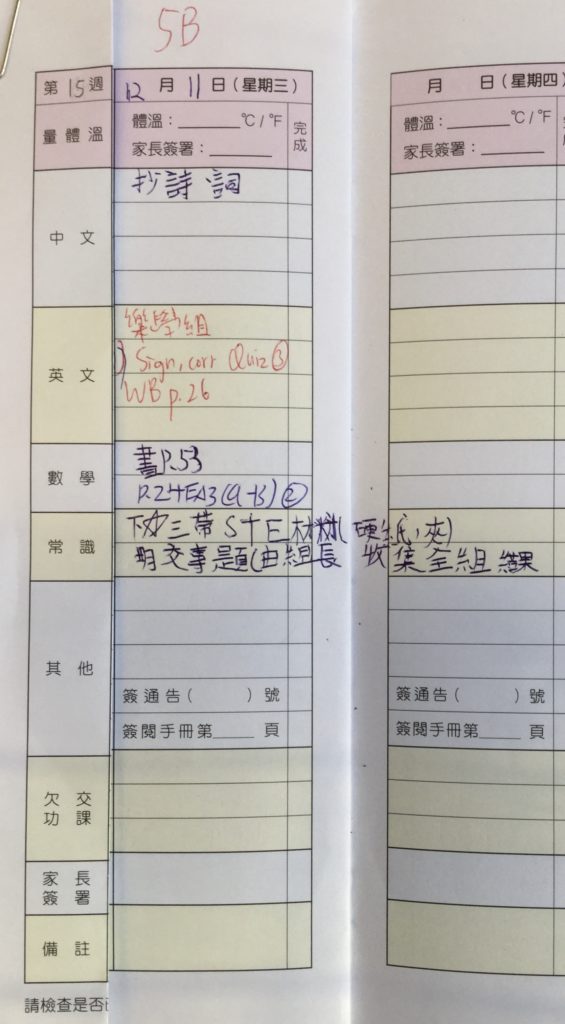 5B
第15週 12月11日(星期三) 月 日(星期四)
量體溫 體溫:______℃/℉ 完成 體溫:______℃/℉
家長簽署:______ 家長簽署:______
中文 抄詩詞
英文 樂學組
Sign, corr Quiz③
WB p.26
數學 書P.53
P.24 ②
常識 三帶STEM材料(硬紙,夾)
明交事題(由組長收集全組結果
其他
簽通告( )號 簽通告( )號
簽閱手冊第____頁 簽閱手冊第____頁
欠交功課
家長簽署
備註
請檢查是否